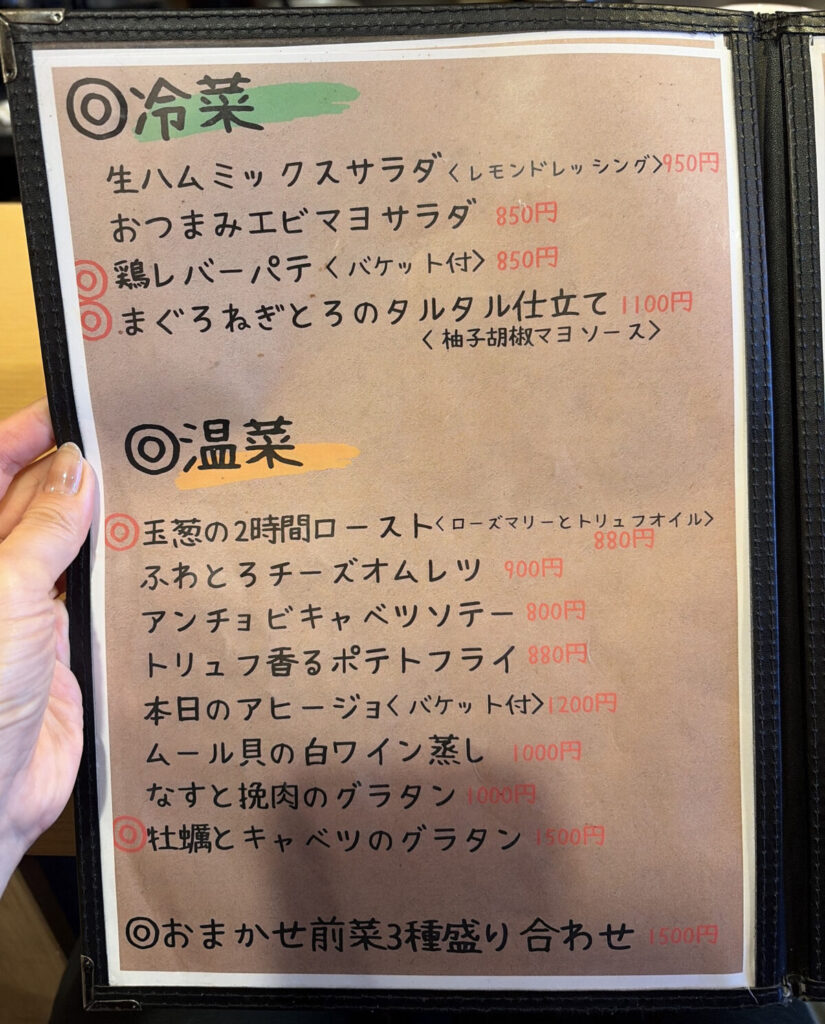 ◎冷菜
生ハムミックスサラダ〈レモンドレッシング〉950円
おつまみエビマヨサラダ 850円
◎鶏レバーパテ〈バケット付〉850円
◎まぐろねぎとろのタルタル仕立て 1100円
〈柚子胡椒マヨソース〉
◎温菜
◎玉葱の2時間ロースト〈ローズマリーとトリュフオイル〉
880円
ふわとろチーズオムレツ 900円
アンチョビキャベツソテー 800円
トリュフ香るポテトフライ 880円
本日のアヒージョ〈バケット付〉1200円
ムール貝の白ワイン蒸し 1000円
なすと挽肉のグラタン 1000円
◎牡蠣とキャベツのグラタン 1500円
◎おまかせ前菜3種盛り合わせ 1500円